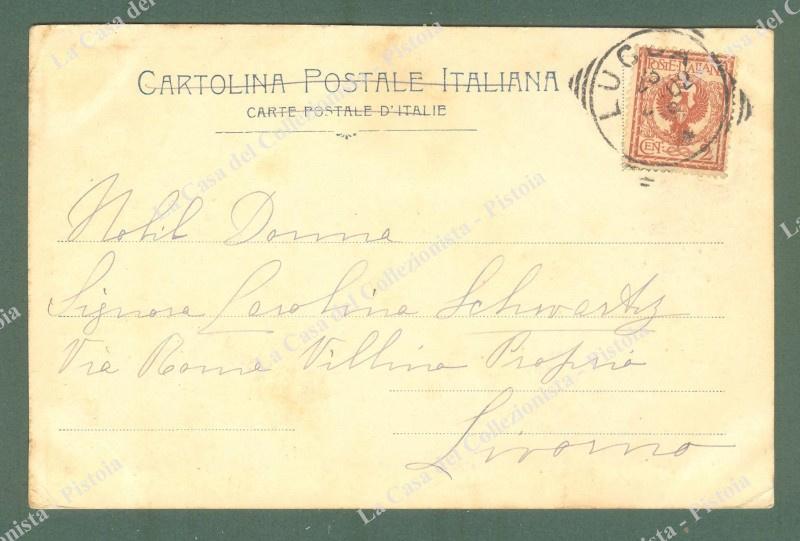 CARTOLINA POSTALE ITALIANA
CARTE POSTALE D'ITALIE
POSTE ITALIANE
CEN. 2
LUC
Nobil Donna
Signora Carolina Schwartz
Via Roma Villino Proprio
Livorno
La Casa del Collezionista - Pistoia